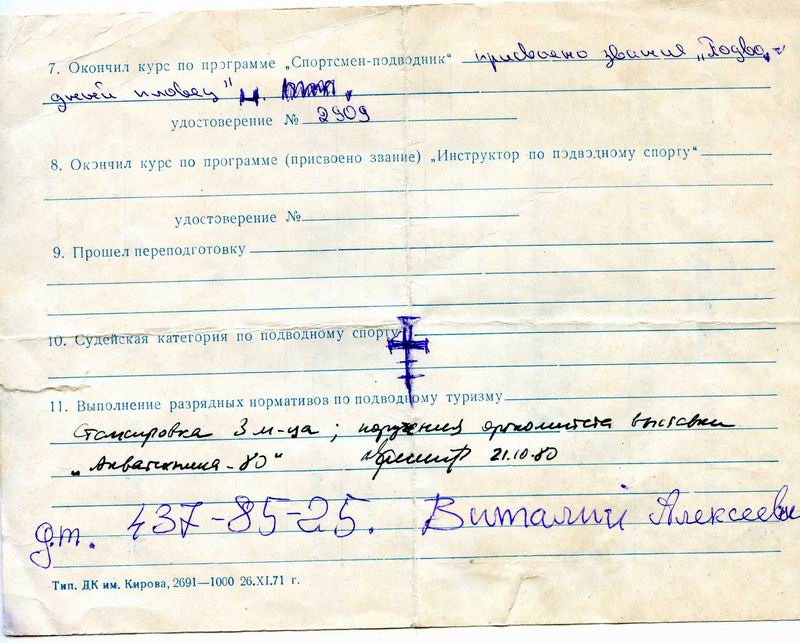 7. Окончил курс по программе „Спортсмен-подводник“ присвоено звания „Подво-
дный пловец" н.
удостоверение № 2909
8. Окончил курс по программе (присвоено звание) „Инструктор по подводному спорту“
удостоверение №
9. Прошел переподготовку
10. Судейская категория по подводному спорту
11. Выполнение разрядных нормативов по подводному туризму
Стажировка 3 м-ца; поручения оргкомитета выставки
„Акватехника-80" 21.10.80
д.т. 437-85-25. Виталий Алексеевич
Тип. ДК им. Кирова, 2691—1000 26.XI.71 г.